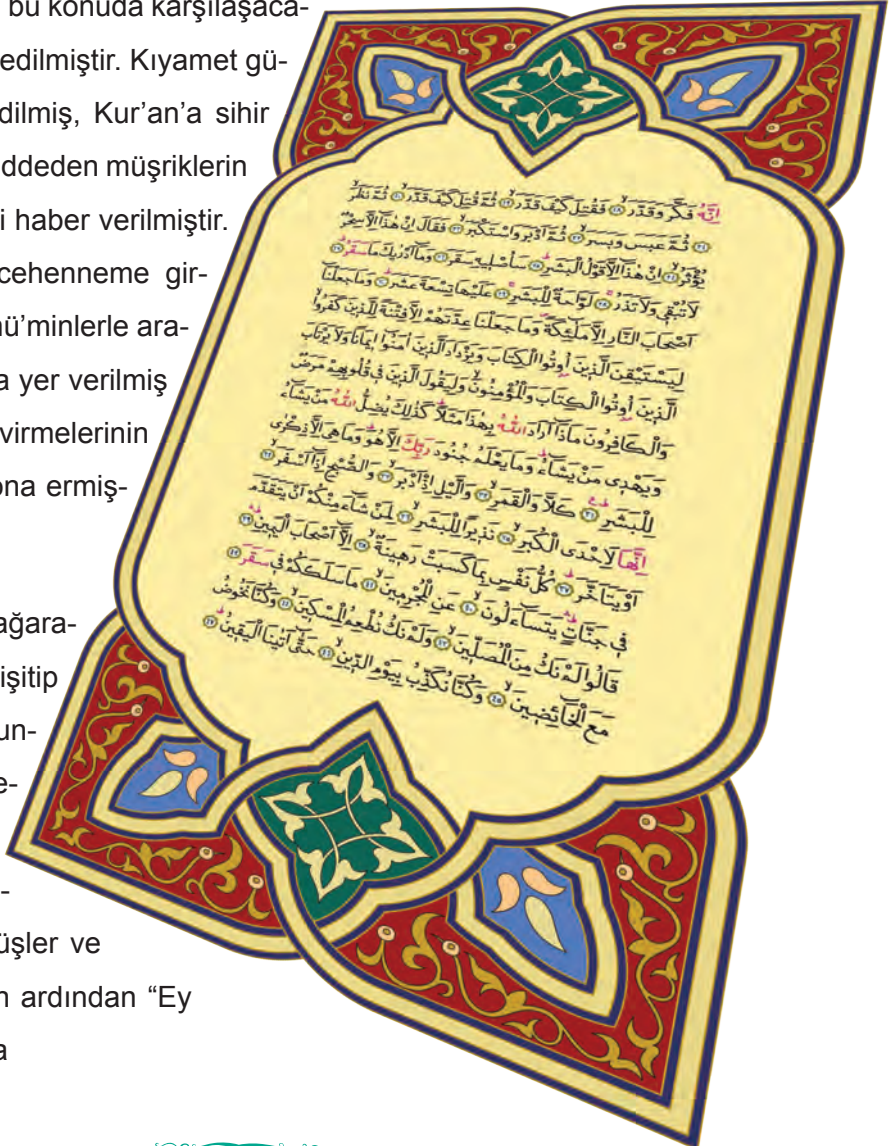 bu konuda karşılaşaca-
edilmiştir. Kıyamet gü-
dilmiş, Kur’an’a sihir
ddeden müşriklerin
i haber verilmiştir.
cehenneme gir-
nü’minlerle ara-
a yer verilmiş
virmelerinin
ona ermiş-
ağara-
işitip
un-
e-
-
üşler ve
n ardından “Ey
a
اِنَّهُ فَكَّرَ وَقَدَّرَۙ ﴿١٨﴾ فَقُتِلَ كَيْفَ قَدَّرَۙ ﴿١٩﴾ ثُمَّ قُتِلَ كَيْفَ قَدَّرَۙ ﴿٢٠﴾ ثُمَّ نَظَرَۙ
﴿٢١﴾ ثُمَّ عَبَسَ وَبَسَرَۙ ﴿٢٢﴾ ثُمَّ اَدْبَرَ وَاسْتَكْبَرَۙ ﴿٢٣﴾ فَقَالَ اِنْ هٰذَٓا اِلَّا سِحْرٌ
يُؤْثَرُۙ ﴿٢٤﴾ اِنْ هٰذَٓا اِلَّا قَوْلُ الْبَشَرِۜ ﴿٢٥﴾ سَاُصْلِيهِ سَقَرَ ﴿٢٦﴾ وَمَٓا اَدْرٰيكَ مَا سَقَرُۜ ﴿٢٧﴾
لَا تُبْقِي وَلَا تَذَرُۚ ﴿٢٨﴾ لَوَّاحَةٌ لِلْبَشَرِۚ ﴿٢٩﴾ عَلَيْهَا تِسْعَةَ عَشَرَۜ ﴿٣٠﴾ وَمَا جَعَلْنَٓا
اَصْحَابَ النَّارِ اِلَّا مَلٰٓئِكَةًۖ وَمَا جَعَلْنَا عِدَّتَهُمْ اِلَّا فِتْنَةً لِلَّذِينَ كَفَرُواۙ
لِيَسْتَيْقِنَ الَّذِينَ اُوتُوا الْكِتَابَ وَيَزْدَادَ الَّذِينَ اٰمَنُٓوا اِيمَانًا وَلَا يَرْتَابَ
الَّذِينَ اُوتُوا الْكِتَابَ وَالْمُؤْمِنُونَۙ وَلِيَقُولَ الَّذِينَ فِي قُلُوبِهِمْ مَرَضٌ
وَالْكَافِرُونَ مَاذَٓا اَرَادَ اللّٰهُ بِهٰذَا مَثَلًاۜ كَذٰلِكَ يُضِلُّ اللّٰهُ مَنْ يَشَٓاءُ
وَيَهْدِي مَنْ يَشَٓاءُۜ وَمَا يَعْلَمُ جُنُودَ رَبِّكَ اِلَّا هُوَۜ وَمَا هِيَ اِلَّا ذِكْرٰى
لِلْبَشَرِ۟ ﴿٣١﴾ كَلَّا وَالْقَمَرِۙ ﴿٣٢﴾ وَالَّيْلِ اِذْ اَدْبَرَۙ ﴿٣٣﴾ وَالصُّبْحِ اِذَٓا اَسْفَرَۙ ﴿٣٤﴾
اِنَّهَا لَاِحْدَى الْكُبَرِۙ ﴿٣٥﴾ نَذِيرًا لِلْبَشَرِۙ ﴿٣٦﴾ لِمَنْ شَٓاءَ مِنْكُمْ اَنْ يَتَقَدَّمَ
اَوْ يَتَاَخَّرَۜ ﴿٣٧﴾ كُلُّ نَفْسٍ بِمَا كَسَبَتْ رَهِينَةٌۙ ﴿٣٨﴾ اِلَّٓا اَصْحَابَ الْيَمِينِۜۛ ﴿٣٩﴾
فِي جَنَّاتٍۜۛ يَتَسَٓاءَلُونَۙ ﴿٤٠﴾ عَنِ الْمُجْرِمِينَۙ ﴿٤١﴾ مَا سَلَكَكُمْ فِي سَقَرَ ﴿٤٢﴾
قَالُوا لَمْ نَكُ مِنَ الْمُصَلِّينَۙ ﴿٤٣﴾ وَلَمْ نَكُ نُطْعِمُ الْمِسْكِينَۙ ﴿٤٤﴾ وَكُنَّا نَخُوضُ
مَعَ الْخَٓائِضِينَۙ ﴿٤٥﴾ وَكُنَّا نُكَذِّبُ بِيَوْمِ الدِّينِۙ ﴿٤٦﴾ حَتّٰٓى اَتٰينَا الْيَقِينُۜ ﴿٤٧﴾